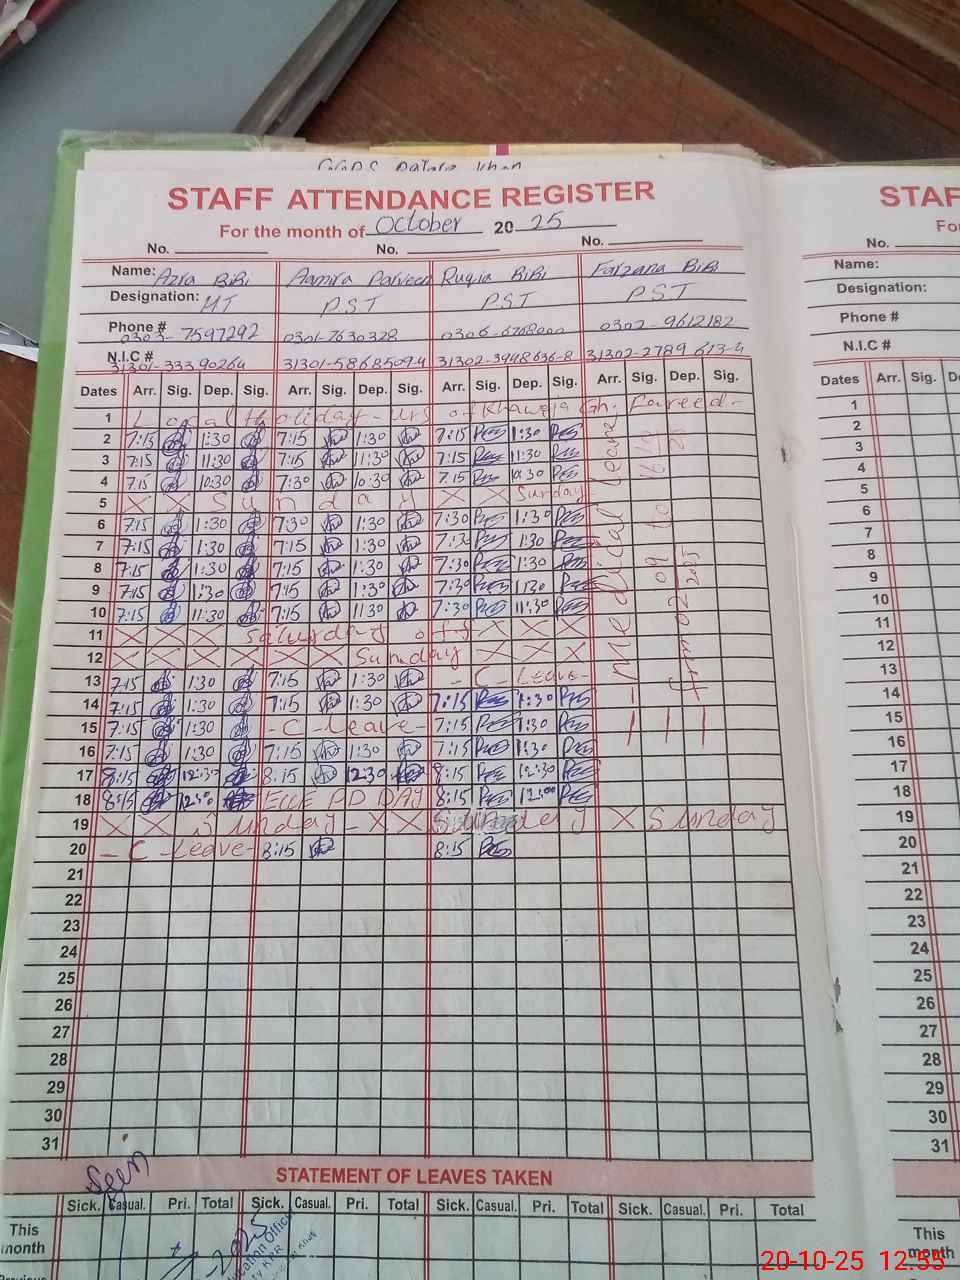 STAFF ATTENDANCE REGISTER
For the month of October 20 25
No. No. No.
Name: Azra BiBi Aamira Parveen Ruqia BiBi Farzana BiBi
Designation: HT PST PST PST
Phone # 0303-7597292 0301-7630328 0302-9612182
N.I.C # 31302-3948636-8 31302-2789 613-4
Dates Arr. Sig. Dep. Sig. Arr. Sig. Dep. Sig. Arr. Sig. Dep. Sig. Arr. Sig. Dep. Sig.
1 Local Holiday - urs of Khawaja Gh. Fareed-
2 7:15 1:30 7:15 1:30 7:15 1:30
3 7:15 11:30 7:15 11:30 7:15 11:30
4 7:15 10:30 7:30 10:30 7:15 10:30
5 X X Sunday X X Sunday
6 7:15 1:30 7:30 1:30 7:30 1:30
7 7:15 1:30 7:15 1:30 7:30 1:30
8 7:15 1:30 7:15 1:30 7:30 1:30
9 7:15 1:30 7:15 1:30 7:30 1:30
10 7:15 11:30 7:15 11:30 7:30 11:30
11 X X X Saturday off X X X
12 X X X X X X Sunday X X X
13 7:15 1:30 7:15 1:30 - C - Leave -
14 7:15 1:30 7:15 1:30 7:15 1:30
15 7:15 1:30 - C - Leave - 7:15 1:30
16 7:15 1:30 7:15 1:30 7:15 1:30
17 8:15 12:30 8:15 12:30 8:15 12:30
18 8:15 12:00 ECCE PD DAY 8:15 12:00
19 X X Sunday - X X Sunday X Sunday
20 - C - Leave - 8:15 8:15
21
22
23
24
25
26
27
28
29
30
31
medical leave
from 02 09 2025 to 16/10 25
STATEMENT OF LEAVES TAKEN
Seen
Sick. Casual. Pri. Total Sick. Casual. Pri. Total Sick. Casual. Pri. Total Sick. Casual. Pri. Total
This month
STAF
No.
Name:
Designation:
Phone #
N.I.C #
Dates Arr. Sig.
1
2
3
4
5
6
7
8
9
10
11
12
13
14
15
16
17
18
19
20
21
22
23
24
25
26
27
28
29
30
31
This month
20-10-25 12:55